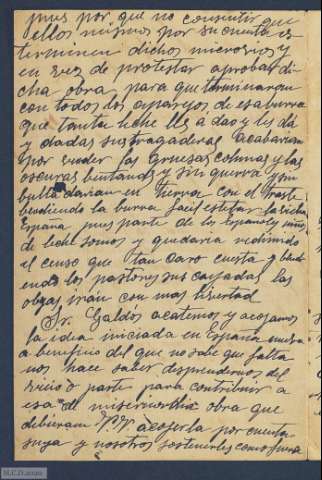 pues por que no consentir que
ellos mismos por su cuenta es
terminen dichos microvios y
en ves de protestar aprobar di
cha obra para que terminaran
con todos los aparejos de esa burra
que tanta leche lles a dao y les dá
y dadas sus tragaderas acabarian
por vender las gruesas colunas y las
oscuras bentanas y sin guerra y sin
bulla darian en tierra con el traste
bendiendo la burra facil
España pues parte de los Españoles niños
de leche somos y quedaria redimido
el censo que tan caro cuesta y bendi
endo los pastores sus cayadas las
obejas irian con mas libertad
Sr. Galdos acatemos y acojamos
la idea iniciada en España nueva
a beneficio del que no sabe que falta
nos hace saber desprendernos del
vicio o parte para contribuir a
esa de misericordia obra que
debieran V.V. acojerla por cuenta
suya y nosotros sostenerles como fuera
M.C.D. 2022